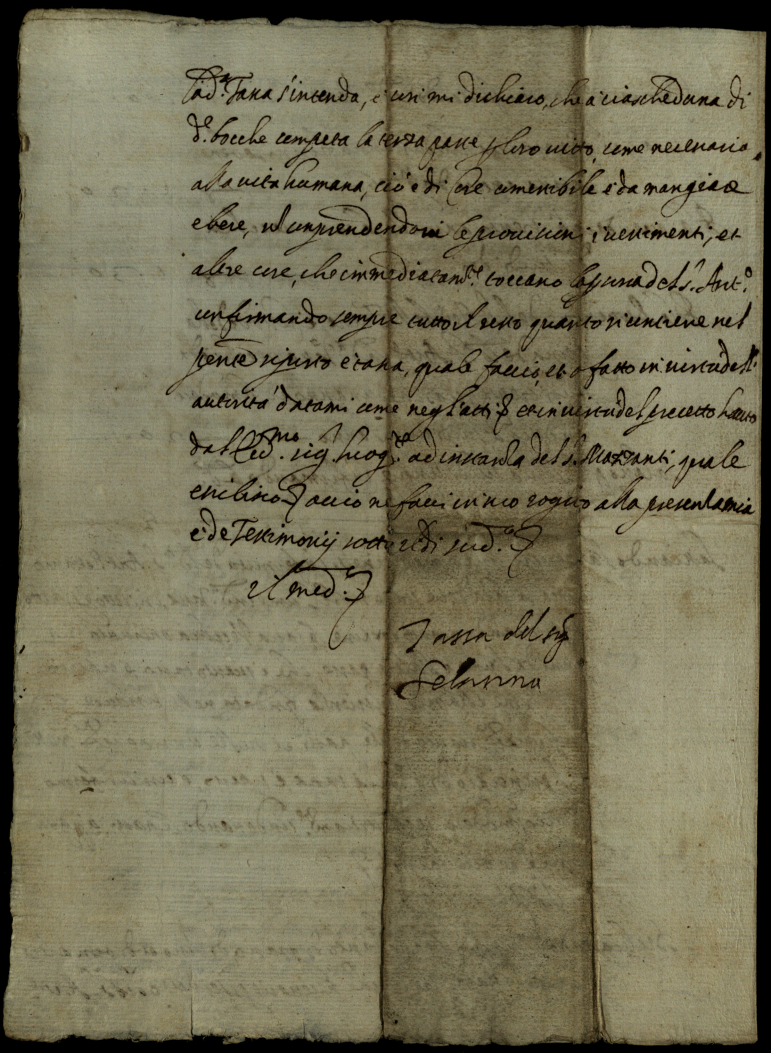 lad.ª Tassa s'intenda, e così mi dichiaro, che a ciascheduna di
d.e bocche competa la terza parte p loro vitto, come necessario
alla vita humana, cioè di cose comestibile e da mangiare
e bere, nō comprendendovi le provisioni, i vestimenti, et
altre cose, che immediatam.te toccano la psona del s.r Ant.o
confirmando sempre tutto il resto quanto si contiene nel
pnte riparto e tassa, quale faccio, et ò fatto in virtù dell'
autorità datami come negl'atti et in virtù del precetto hauto
dal sig.r luog.te ad instanza del s.r Mazzanti, quale
esibisco acciò ne facci in rogito alla presenza mia
e de Testimonij sotto di sud.o
Il med.o
Tassa del sig.r